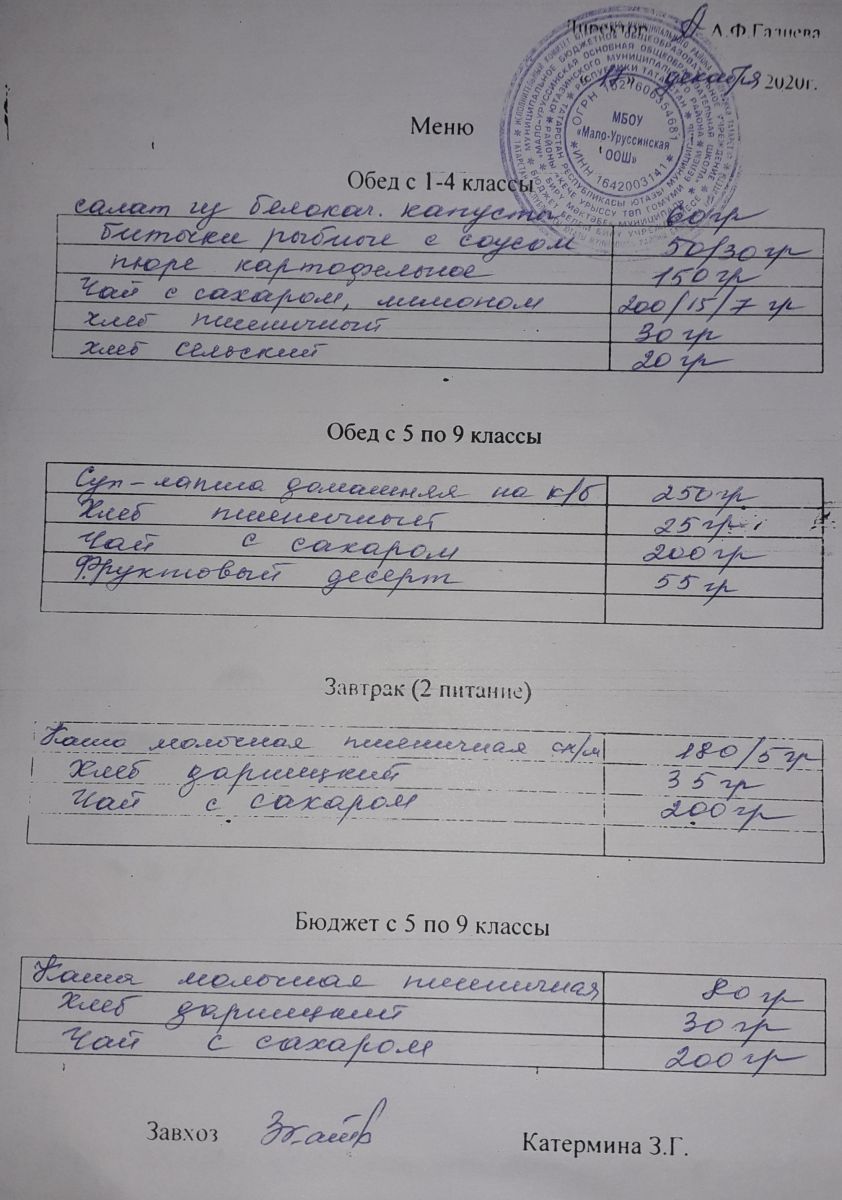 Директор А.Ф.Газиева
декабря 2020г.
МБОУ
«Мало-Уруссинская
ООШ»
ОГРН 1021606354681
ИНН 1642003141
Меню
Обед с 1-4 классы
салат из белокач. капусты 60гр
биточки рыбные с соусом 50/30гр
пюре картофельное 150гр
Чай с сахаром, лимоном 200/15/7 гр
хлеб пшеничный 30гр
хлеб сельский 20гр
Обед с 5 по 9 классы
Суп-лапша домашняя на к/б 250гр
Хлеб пшеничный 25гр
Чай с сахаром 200гр
Фруктовый десерт 55 гр
Завтрак (2 питание)
Каша молочная пшеничная сл/м 180/5гр
Хлеб дарницкий 35гр
Чай с сахаром 200гр
Бюджет с 5 по 9 классы
Каша молочная пшеничная 80гр
Хлеб дарницкий 30гр
Чай с сахаром 200гр
Завхоз Катермина З.Г.